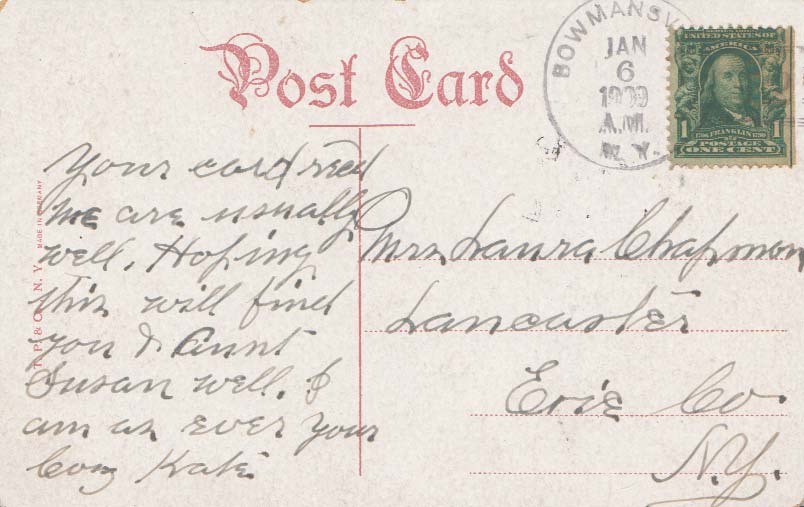 Post Card
BOWMANSV
JAN
6
1909
A.M.
N.Y.
SERIES 1902
UNITED STATES OF
AMERICA
1 1706 FRANKLIN 1790 1
POSTAGE
ONE CENT
Your card recd
We are usually
well, Hoping
this will find
you & Aunt
Susan well. I
am as ever your
Coz Kate
Mrs Laura Chapman
Lancaster
Erie Co
N.Y.
T. P. & Co. N. Y. MADE IN GERMANY